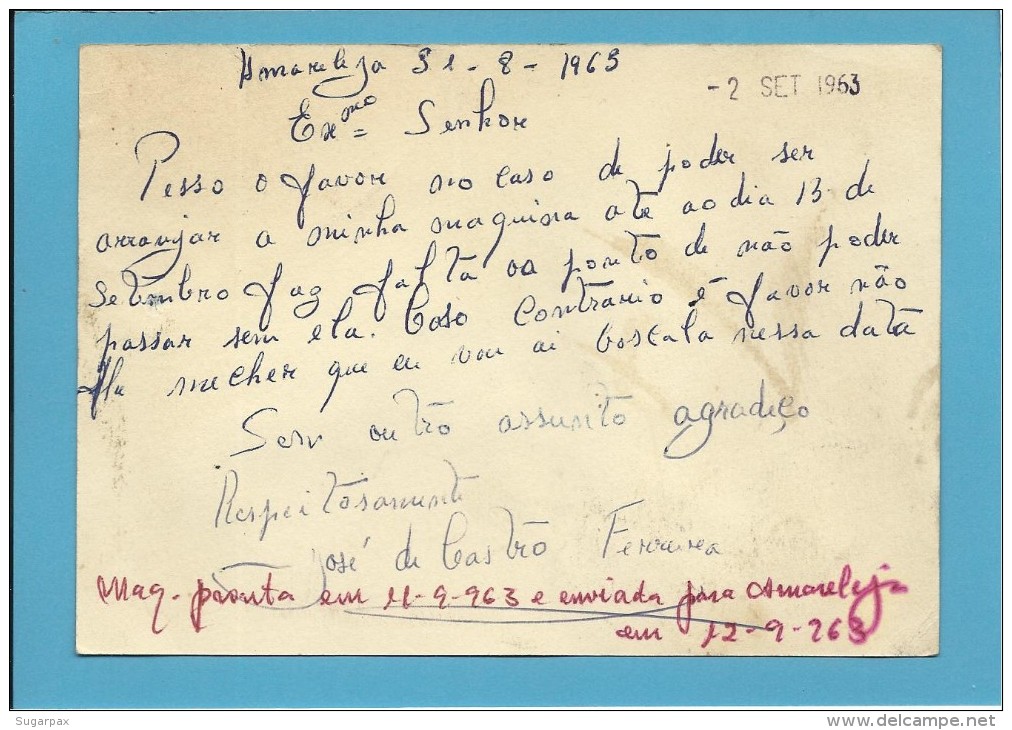 Amareleja 31-8-1963
- 2 SET 1963
Exmo Senhor
Pesso o favor no caso de poder ser
arranjar a minha maquina até ao dia 13 de
Setembro faz falta ao ponto de não poder
passar sem ela. Caso contrario é favor não
lhe melher que eu vou ai boscala nessa data
Sem outro assunto agradeço
Respeitosamente
José de Castro Ferreira
Maq. pronta em 11-9-963 e enviada para Amareleja
em 12-9-963
Sugarpax
www.delcampe.net